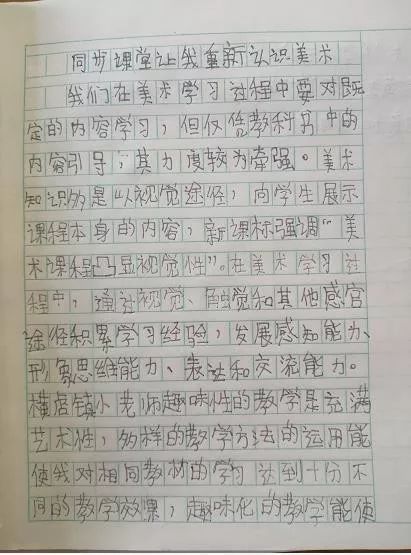 同步课堂让我重新认识美术
我们在美术学习过程中要对既
定的内容学习，但仅凭教科书中的
内容引导，其力度较为牵强。美术
知识多是以视觉途径，向学生展示
课程本身的内容，新课标强调“美
术课程凸显视觉性”。在美术学习过
程中，通过视觉、触觉和其他感官
途径积累学习经验，发展感知能力、
形象思维能力、表达和交流能力。
横店镇小老师趣味性的教学是充满
艺术性，多样的教学方法的运用能
使我对相同教材的学习达到十分不
同的教学效果，趣味化的教学能使